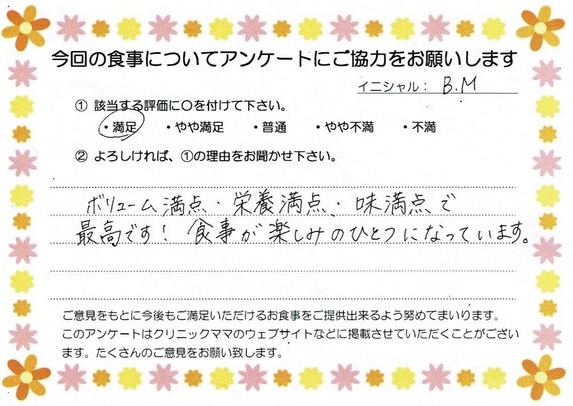 今回の食事についてアンケートにご協力をお願いします
イニシャル： B.M
① 該当する評価に〇を付けて下さい。
・満足 ・やや満足 ・普通 ・やや不満 ・不満
② よろしければ、①の理由をお聞かせ下さい。
ボリューム満点・栄養満点、味満点で
最高です！食事が楽しみのひとつになっています。
ご意見をもとに今後もご満足いただけるお食事をご提供出来るよう努めてまいります。
このアンケートはクリニックママのウェブサイトなどに掲載させていただくことがござい
ます。たくさんのご意見をお願い致します。